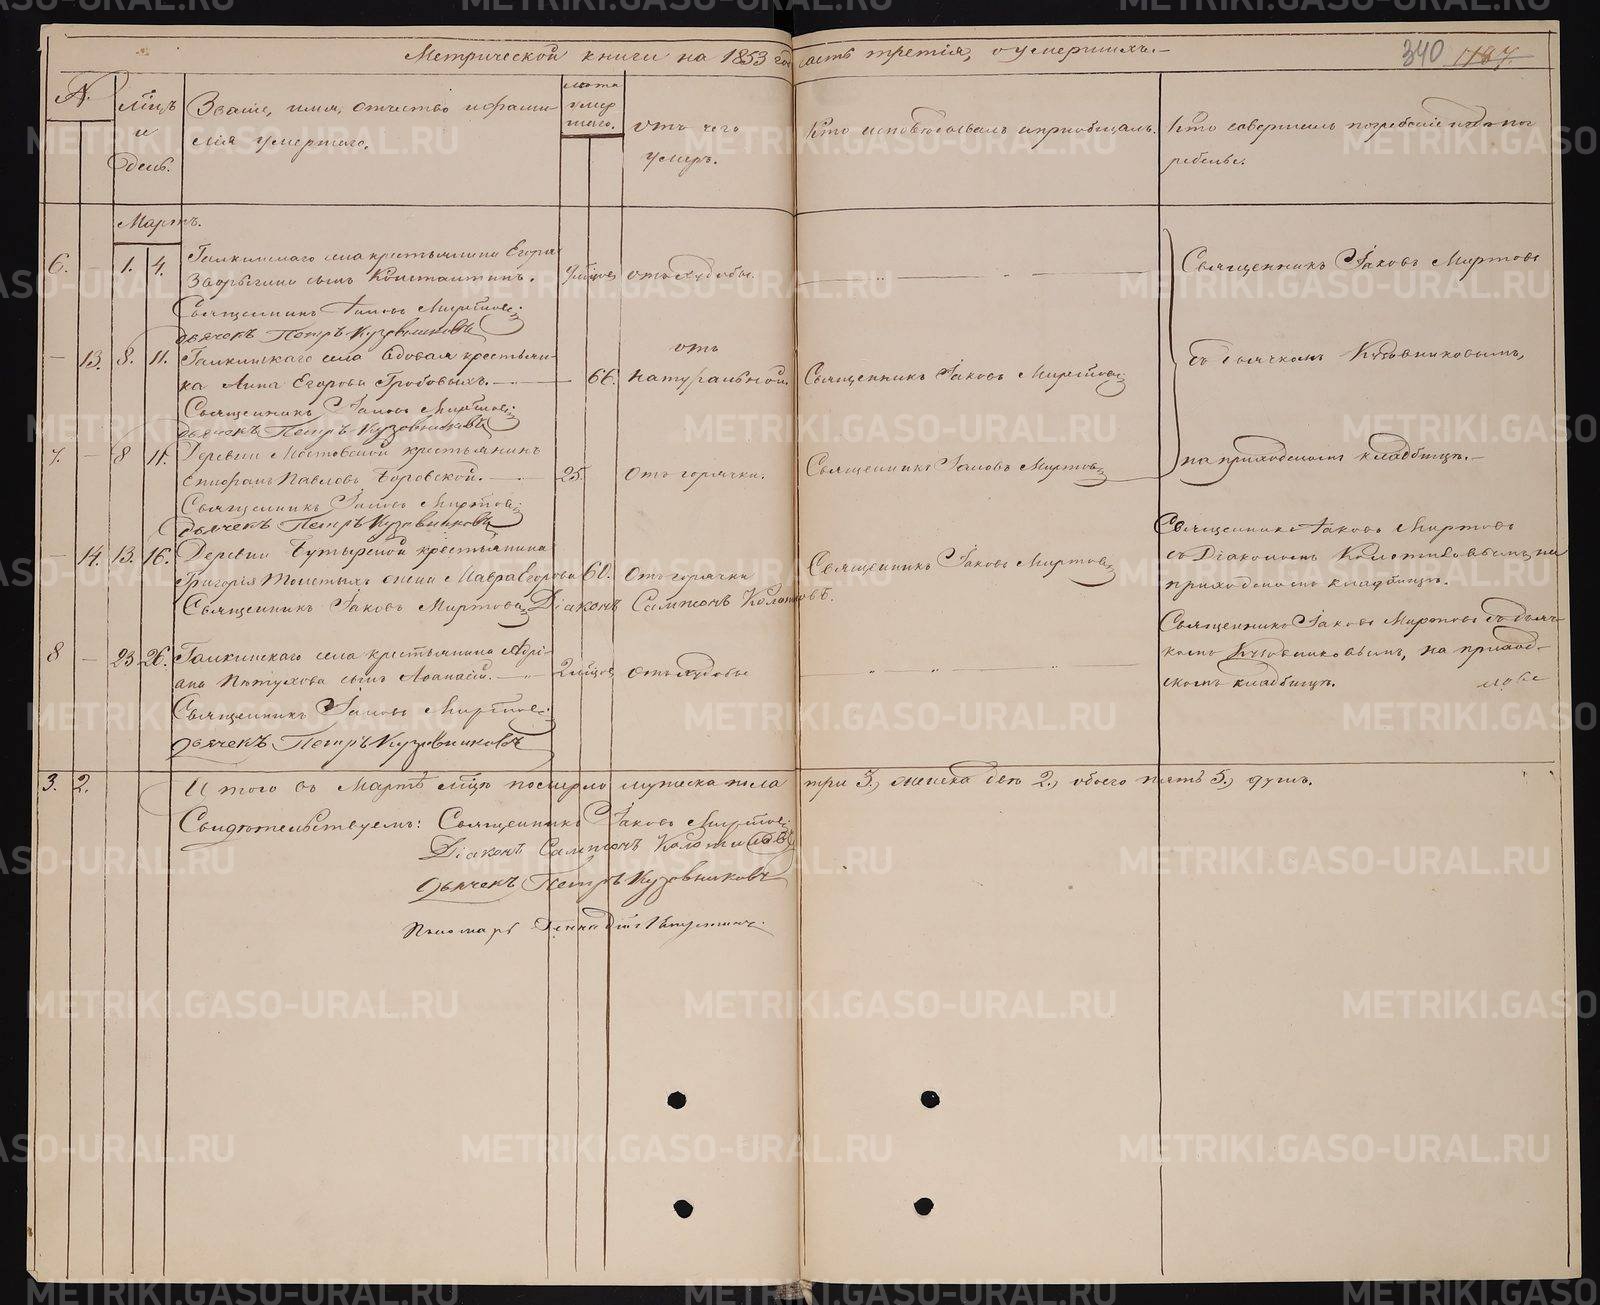 Метрической книги на 1853 год часть третія, о умершихъ.
340 1187
№.
Мѣсяцъ
и
день.
Званіе, имя, отчество и фами-
лія умершаго.
лѣта
умер
шаго.
отъ чего
умеръ.
Кто исповѣдовалъ и пріобщалъ.
Кто совершалъ погребеніе и гдѣ пог
ребены.
Мартъ.
6. – 1. 4. Галкинскаго села крестьянина Егора
сынъ Константинъ. отъ худобы.
Священникъ Іаковъ Миртовъ
дьячекъ Петръ Кузовниковъ
– 13. 8. 11. Галкинскаго села вдовая крестьян-
ка Анна Егорова Гробовыхъ. 66. отъ натуральной. Священникъ Іаковъ Миртовъ
Священникъ Іаковъ Миртовъ
дьячекъ Петръ Кузовниковъ
Священникъ Іаковъ Миртовъ
съ дьячкомъ Кузовниковымъ,
на приходскомъ кладбищѣ.
7. – 8 11. Деревни Мостовской крестьянинъ
Епифанъ Павловъ Боровской. 25. Отъ горячки. Священникъ Іаковъ Миртовъ
Священникъ Іаковъ Миртовъ
дьячекъ Петръ Кузовниковъ
– 14. 13. 16. Деревни Бутырской крестьянина
Григорія Толстыхъ жена Мавра Егорова 60. Отъ горячки Священникъ Іаковъ Миртовъ
Священникъ Іаковъ Миртовъ Діаконъ Сампсонъ Колотиловъ.
Священникъ Іаковъ Миртовъ
съ Діакономъ Колотиловымъ, на
приходскомъ кладбищѣ.
8 – 23. 26. Галкинскаго села крестьянина Адрі-
ана Пѣтухова сынъ Аѳанасій. 2 мѣсяцов отъ худобы
Священникъ Іаковъ Миртовъ
дьячекъ Петръ Кузовниковъ
Священникъ Іаковъ Миртовъ съ дьяч-
комъ Кузовниковымъ, на приход-
скомъ кладбищѣ.
3. 2. Итого въ Мартѣ мѣсяцѣ померло мужеска пола три 3., женска двѣ 2., обоего пять 5., душъ.
Свидѣтельствуемъ: Священникъ Іаковъ Миртовъ
Діаконъ Сампсонъ Колотиловъ
Дьячекъ Петръ Кузовниковъ
Пономарь Геннадій
METRIKI.GASO-URAL.RU